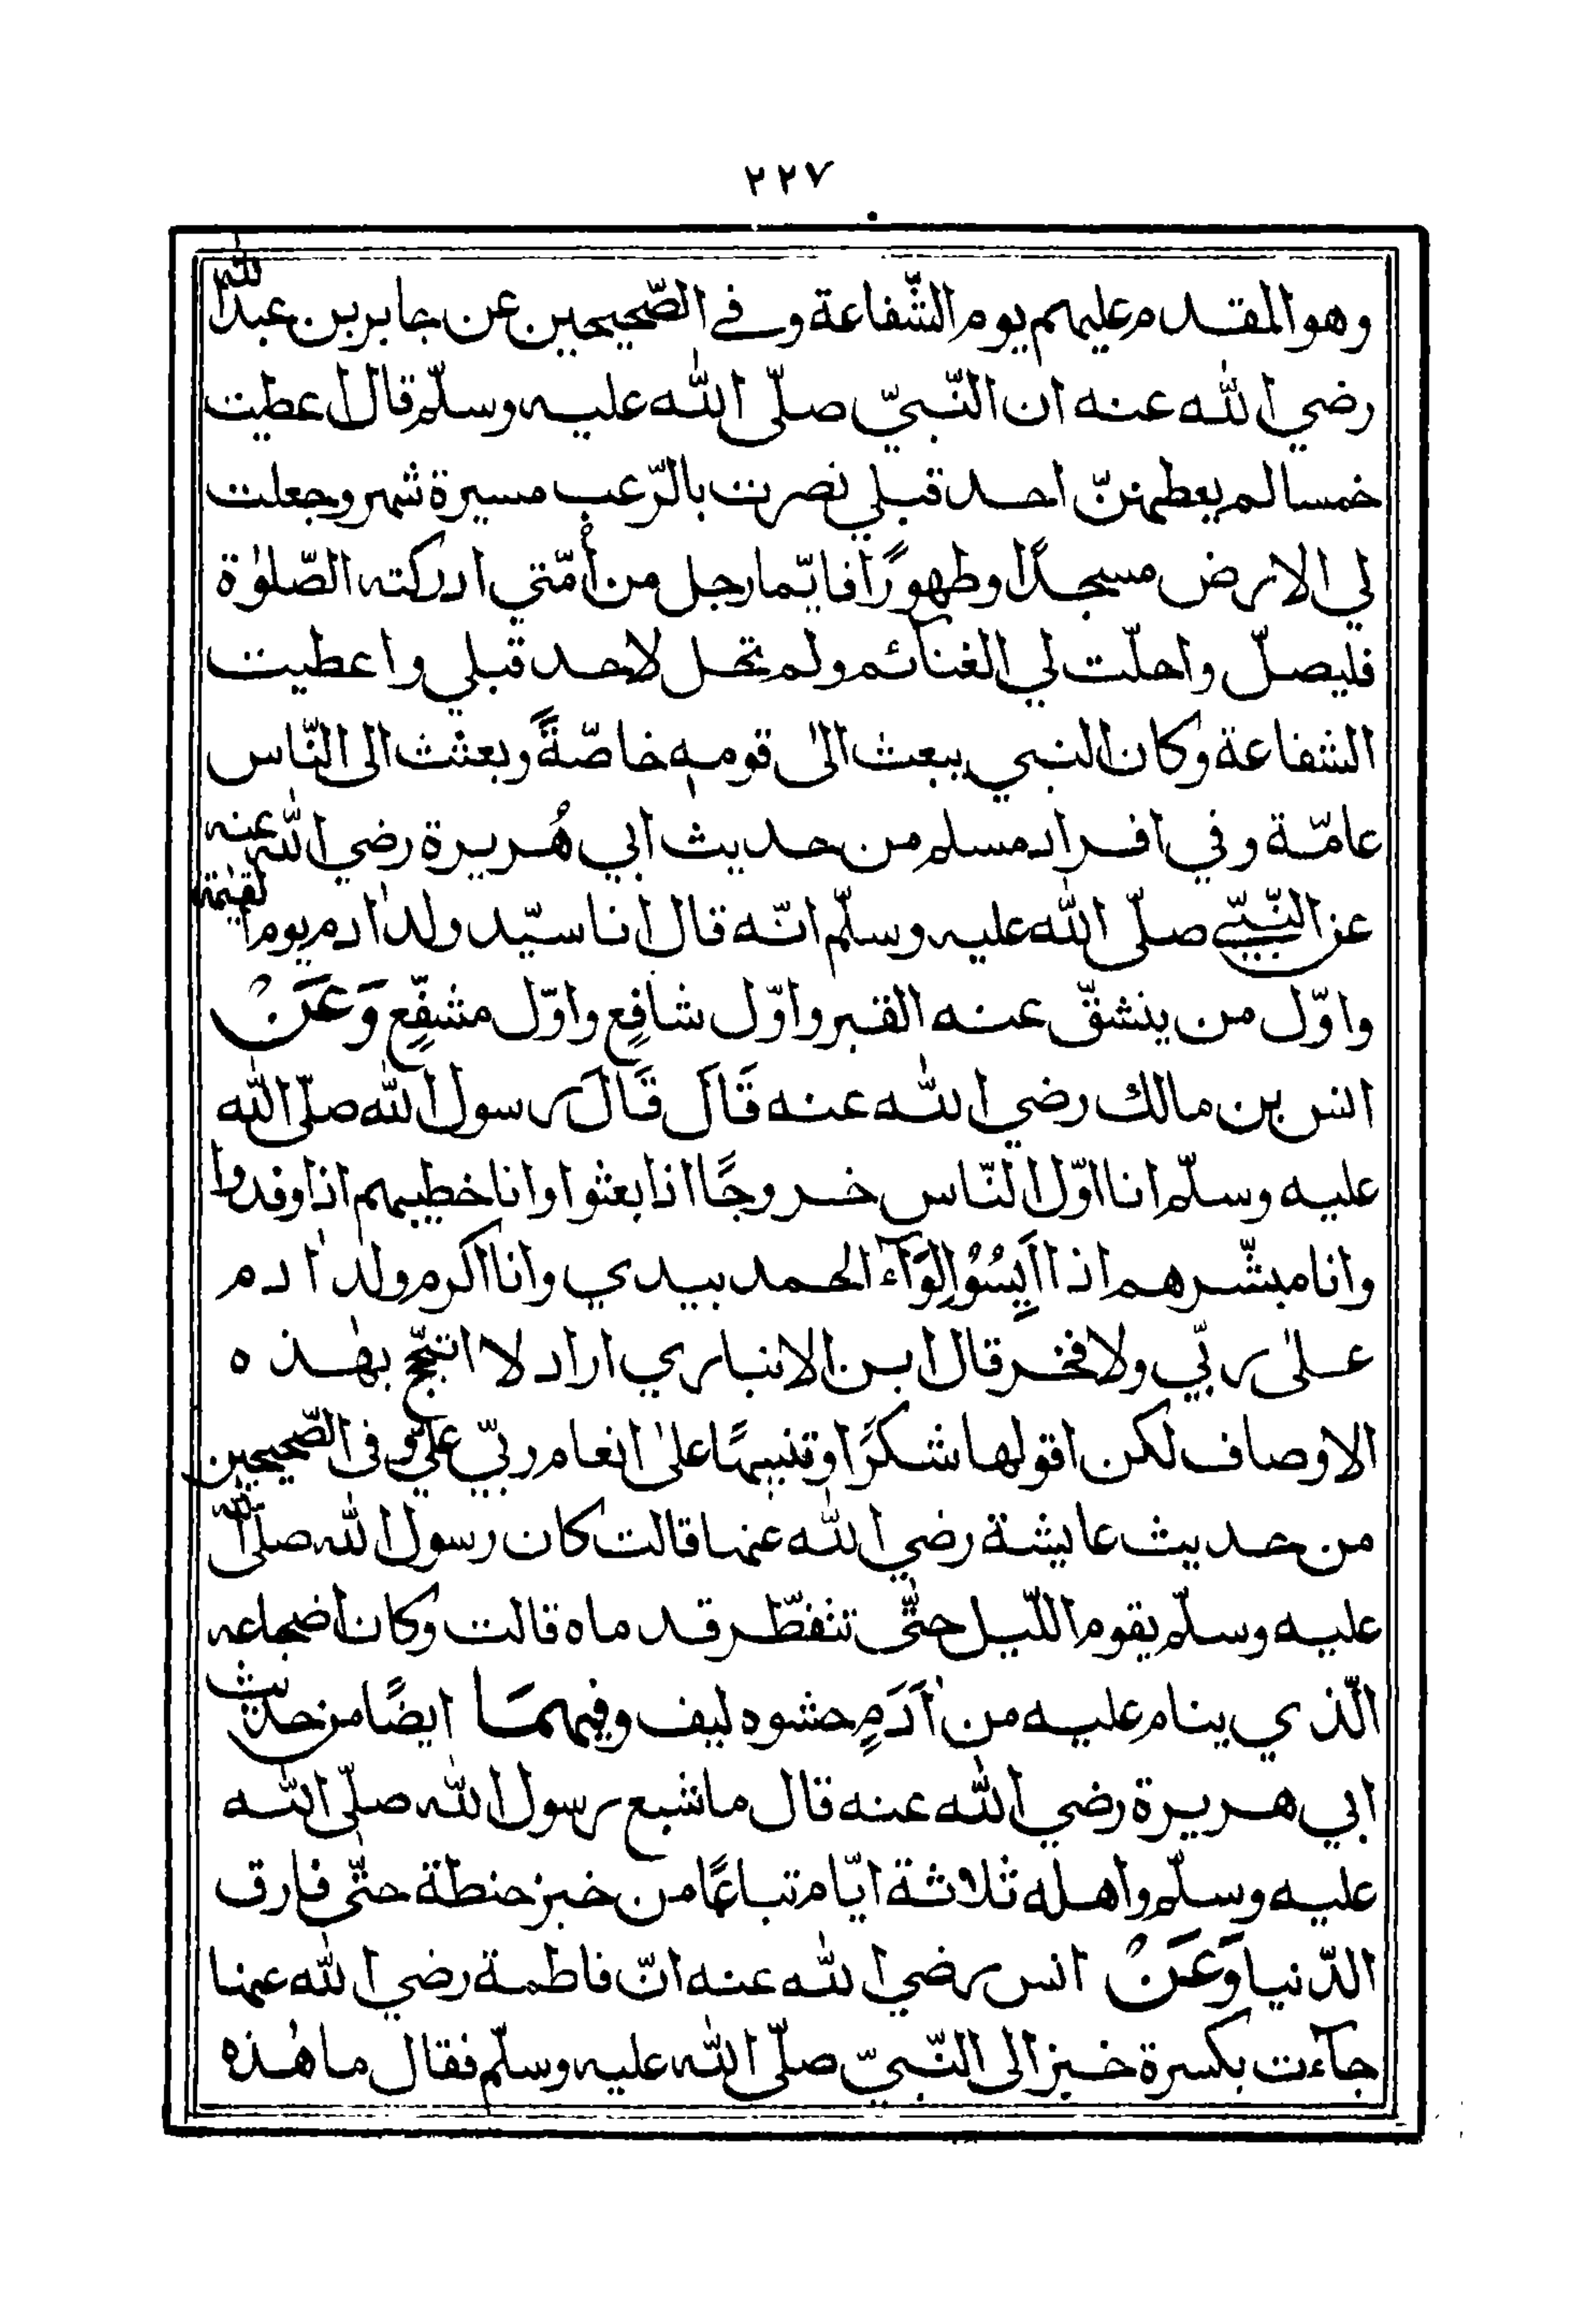 ٢٢٧
وهو المقدم عليهم يوم الشّفاعة وفي الصّحيحين عن جابر بن عبد الله
رضي الله عنه ان النّبيّ صلّى الله عليه وسلّم قال اعطيت
خمسا لم يعطهنّ احد قبلي نصرت بالرّعب مسيرة شهر وجعلت
لي الارض مسجدًا وطهورًا فايّما رجل من أمّتي ادركته الصّلوٰة
فليصلّ واحلّت لي الغنآئم ولم تحل لاحد قبلي واعطيت
الشفاعة وكان النبي يبعث الىٰ قومهٖ خاصّةً وبعثت الى النّاس
عامّة وفي افراد مسلم من حديث ابي هُريرة رضي الله عنه
عن النّبيّ صلّى الله عليه وسلّم انّه قال انا سيّد ولد اٰدم يوم القيٰمة
واوّل من ينشقّ عنه القبر واوّل شافِع واوّل مشفّع وَعَنْ
انس بن مالك رضي الله عنه قَالَ قَالَ رسول الله صلّى الله
عليه وسلّم انا اوّل النّاس خروجًا اذا بعثوا وانا خطيبهم اذا وفدوا
وانا مبشّرهم اذا اَيِسُوْا لِوَآء الحمد بيدي وانا اكرم ولد اٰدم
علىٰ ربّي ولا فخر قال ابن الانباري اراد لا اتبجّح بهٰذه
الاوصاف لكن اقولها شكرًا وتنبيهًا علىٰ انعام ربّي عليّ وفى الصّحيحين
من حديث عايشة رضي الله عنها قالت كان رسول الله صلّى الله
عليه وسلّم يقوم اللّيل حتّٰى تنفطّر قدماه قالت وكان اضجاعه
الّذي ينام عليه من اَدَمٍ حشوه ليف وفيهمَا ايضًا من حديث
ابي هريرة رضي الله عنه قال ما شبع رسول الله صلّى الله
عليه وسلّم واهله ثلاثة ايّام تباعًا من خبز حنطة حتّى فارق
الدّنيا وَعَنْ انس رضي الله عنه انّ فاطمة رضي الله عنها
جآءت بكسرة خبز الى النّبيّ صلّى الله عليه وسلّم فقال ما هٰذه